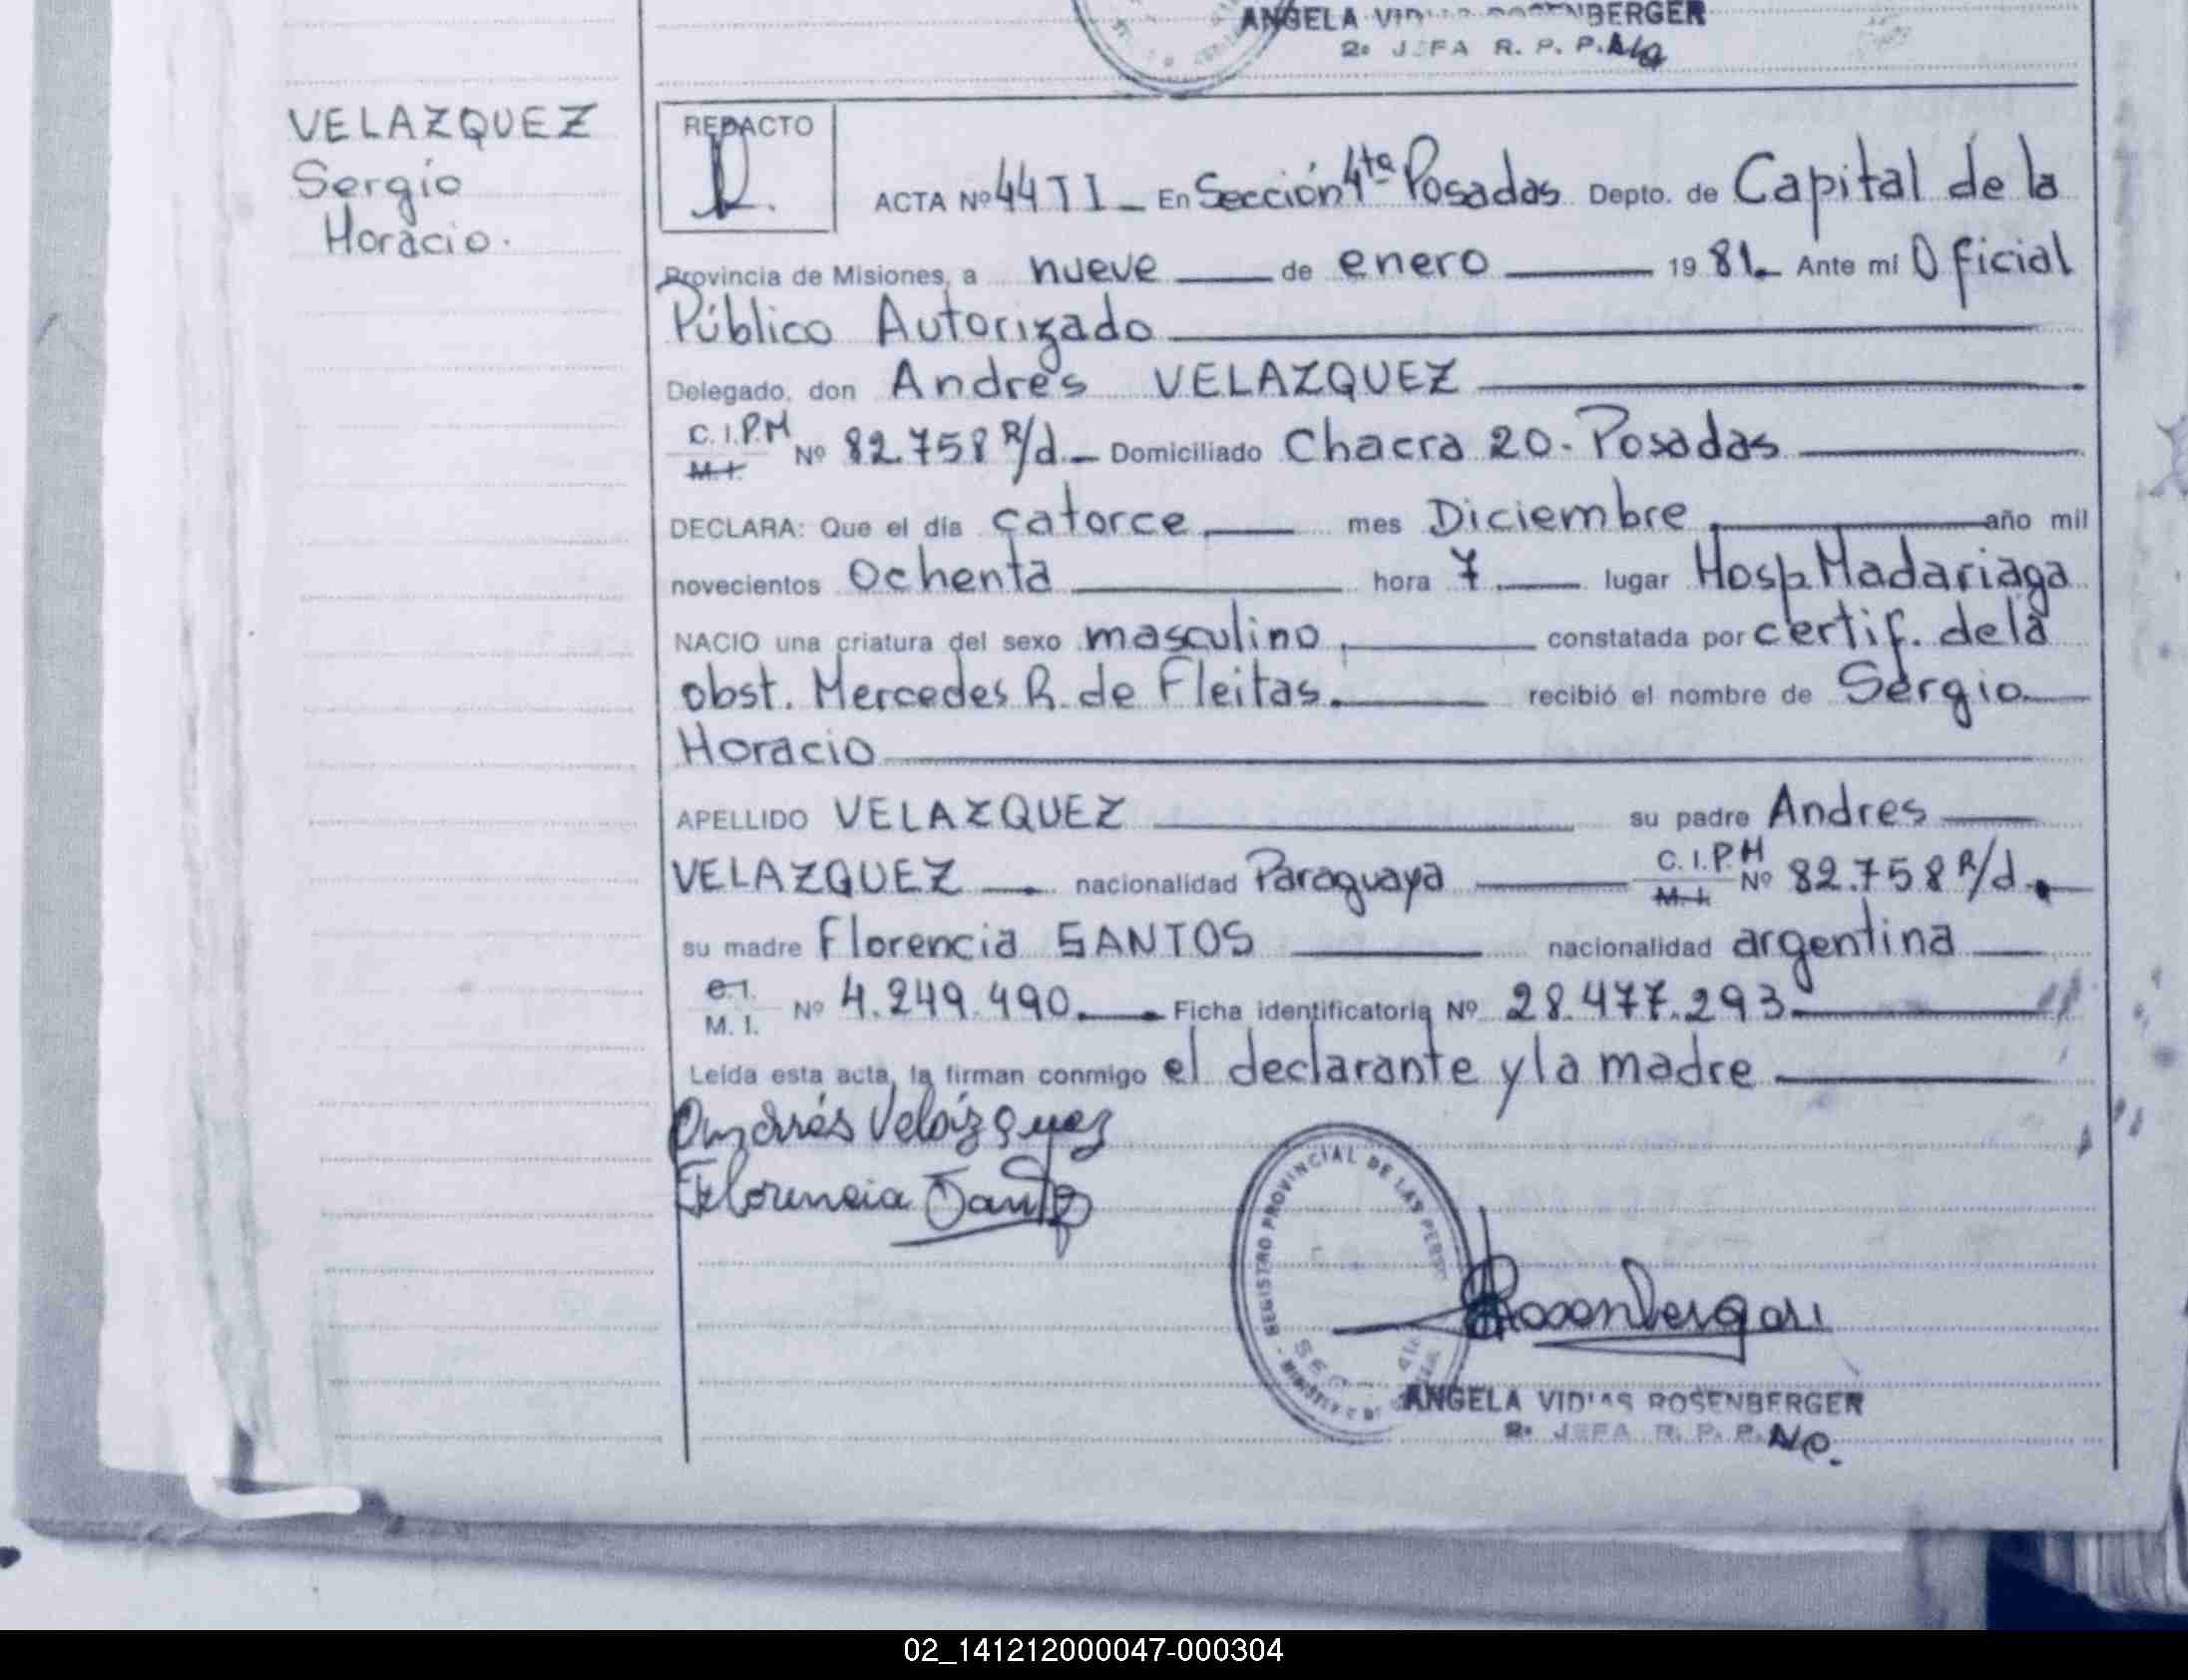 ANGELA VIDIAS ROSENBERGER
2º JEFA R. P. P. A/c
VELAZQUEZ
Sergio
Horacio.
REDACTO
ACTA Nº 44 T I _ En Sección 4ta Posadas Depto. de Capital de la
Provincia de Misiones, a nueve de enero 19 81. Ante mí Oficial
Público Autorizado
Delegado, don Andrés VELAZQUEZ
C.I.P.M
M.I. Nº 82.758 R/d._ Domiciliado Chacra 20 - Posadas
DECLARA: Que el día catorce mes Diciembre año mil
novecientos Ochenta hora 7 lugar Hosp. Madariaga
NACIO una criatura del sexo masculino, constatada por certif. de la
obst. Mercedes R. de Fleitas. recibió el nombre de Sergio
Horacio
APELLIDO VELAZQUEZ su padre Andres
VELAZQUEZ nacionalidad Paraguaya C.I.P.M
M.I. Nº 82.758 R/d.
su madre Florencia SANTOS nacionalidad argentina
C.I.
M. I. Nº 4.249.490. Ficha identificatoria Nº 28.477.293
Leída esta acta, la firman conmigo el declarante y la madre
Andrés Velázquez
Florencia Santos
REGISTRO PROVINCIAL DE LAS PERS
SECC 4ta
Rosenberger
ANGELA VIDIAS ROSENBERGER
2º JEFA R. P. P. A/c.
02_141212000047-000304